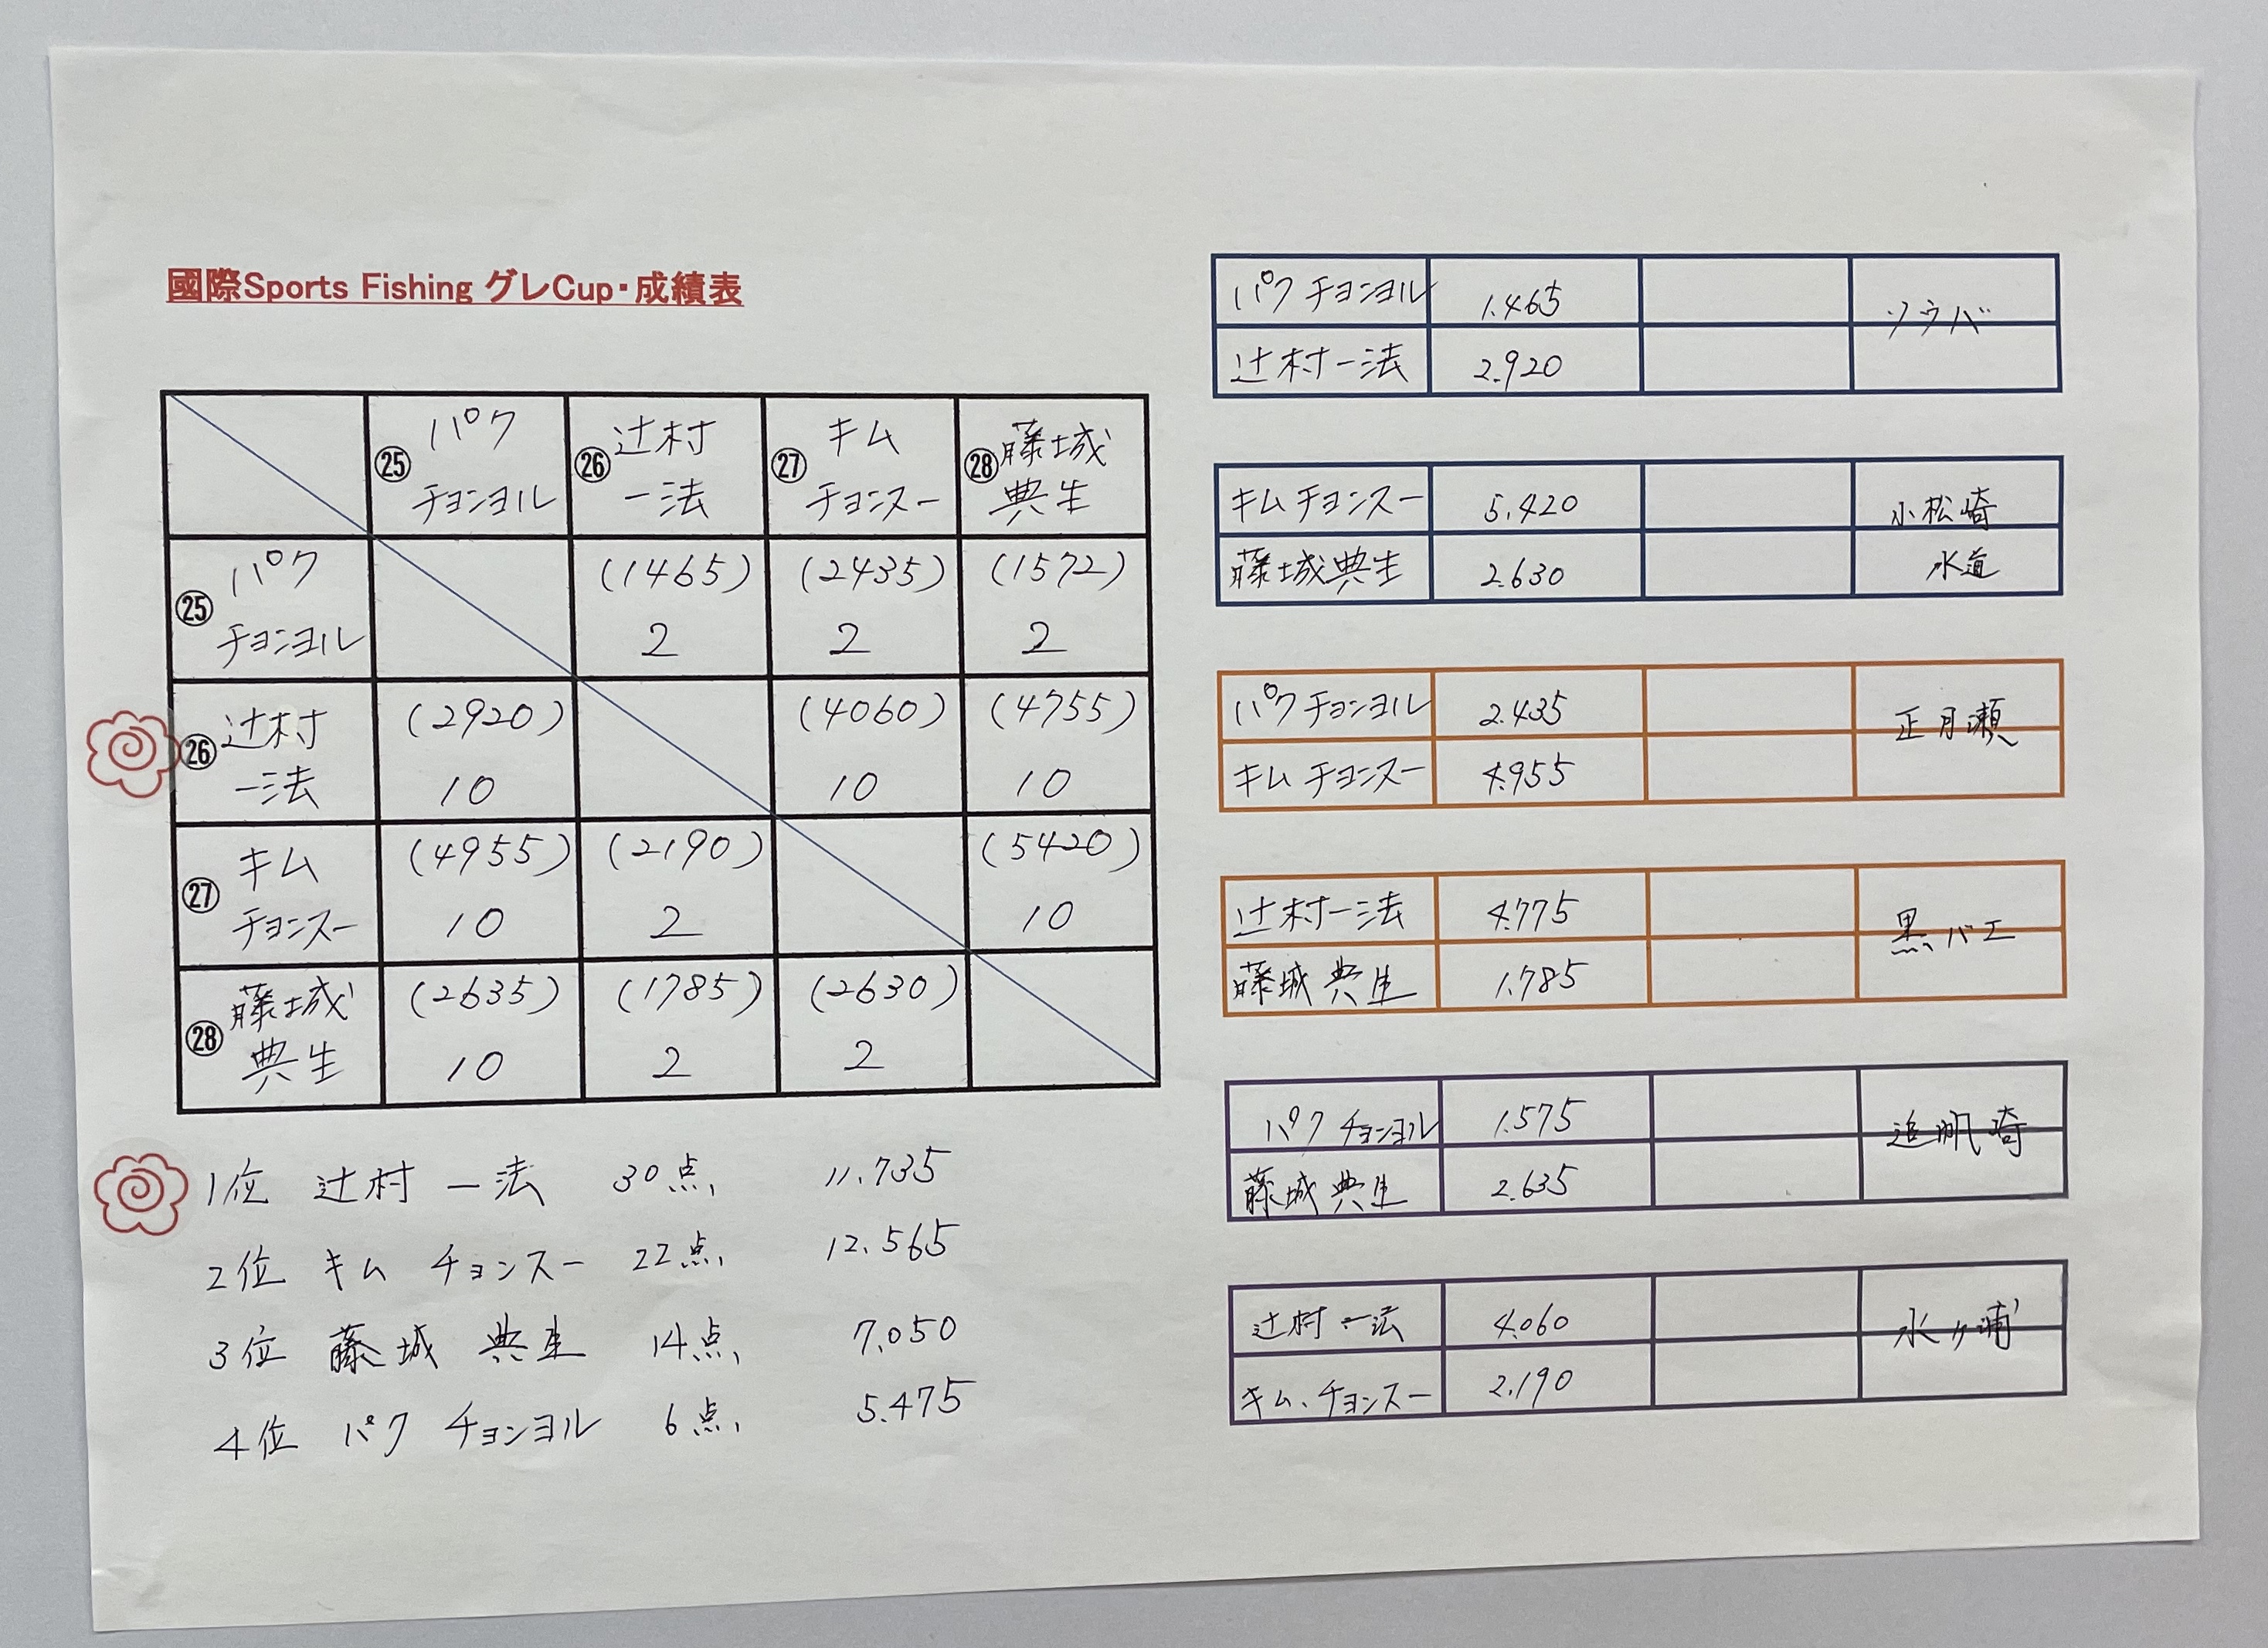 國際Sports Fishing グレCup・成績表
㉕ パク チョンヨル ㉖ 辻村 一法 ㉗ キム チョンスー ㉘ 藤城 典生
㉕ パク チョンヨル (1465) (2435) (1572)
2 2 2
㉖ 辻村 一法 (2920) (4060) (4755)
10 10 10
㉗ キム チョンスー (4955) (2190) (5420)
10 2 10
㉘ 藤城 典生 (2635) (1785) (2630)
10 2 2
1位 辻村 一法 30点, 11.735
2位 キム チョンスー 22点, 12.565
3位 藤城 典生 14点, 7.050
4位 パク チョンヨル 6点, 5.475
パク チョンヨル 1.465 ソウバ
辻村一法 2.920
キム チョンスー 5.420 小松崎
藤城典生 2.630 水道
パク チョンヨル 2.435 正月瀬
キム チョンスー 4.955
辻村一法 4.775 黒バエ
藤城典生 1.785
パク チョンヨル 1.575 追帆崎
藤城典生 2.635
辻村一法 4.060 水ヶ浦
キム、チョンスー 2.190